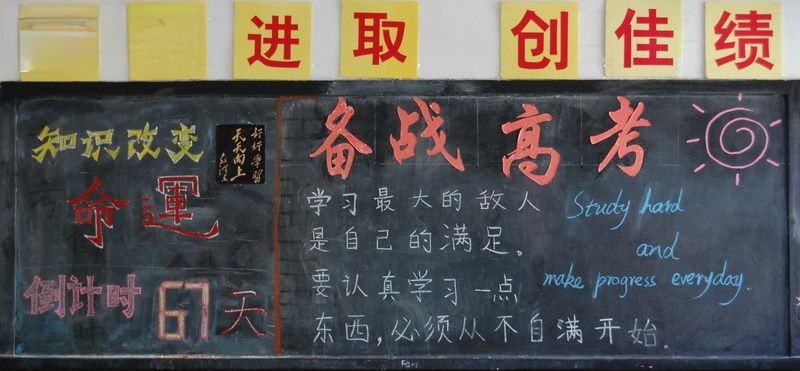 进取 创佳绩
知识改变
命運
好好学习
天天向上
倒计时 67 天
备战高考
学习最大的敌人
是自己的满足。
要认真学习一点
东西,必须从不自满开始。
Study hard
and
make progress everyday.